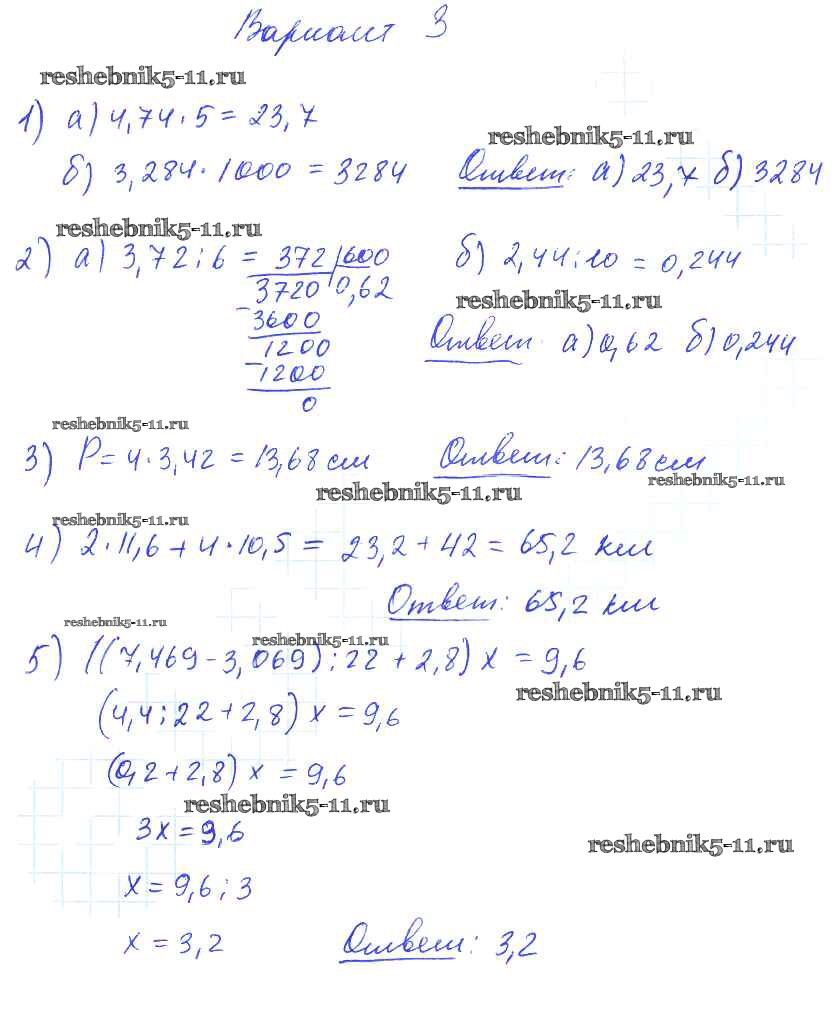 Вариант 3
reshebnik5-11.ru
1) а) 4,74 · 5 = 23,7
reshebnik5-11.ru
б) 3,284 · 1000 = 3284 Ответ: а) 23,7 б) 3284
reshebnik5-11.ru
2) а) 3,72 : 6 = 372 | 600 б) 2,44 : 10 = 0,244
3720 | 0,62
reshebnik5-11.ru
- 3600
1200 Ответ а) 0,62 б) 0,244
- 1200
0
reshebnik5-11.ru
3) P = 4 · 3,42 = 13,68 см Ответ: 13,68 см
reshebnik5-11.ru
reshebnik5-11.ru
reshebnik5-11.ru
4) 2 · 11,6 + 4 · 10,5 = 23,2 + 42 = 65,2 км
Ответ: 65,2 км
reshebnik5-11.ru
reshebnik5-11.ru
5) ((7,469 - 3,069) : 22 + 2,8) x = 9,6
reshebnik5-11.ru
(4,4 : 22 + 2,8) x = 9,6
(0,2 + 2,8) x = 9,6
reshebnik5-11.ru
3x = 9,6
reshebnik5-11.ru
x = 9,6 : 3
x = 3,2 Ответ: 3,2